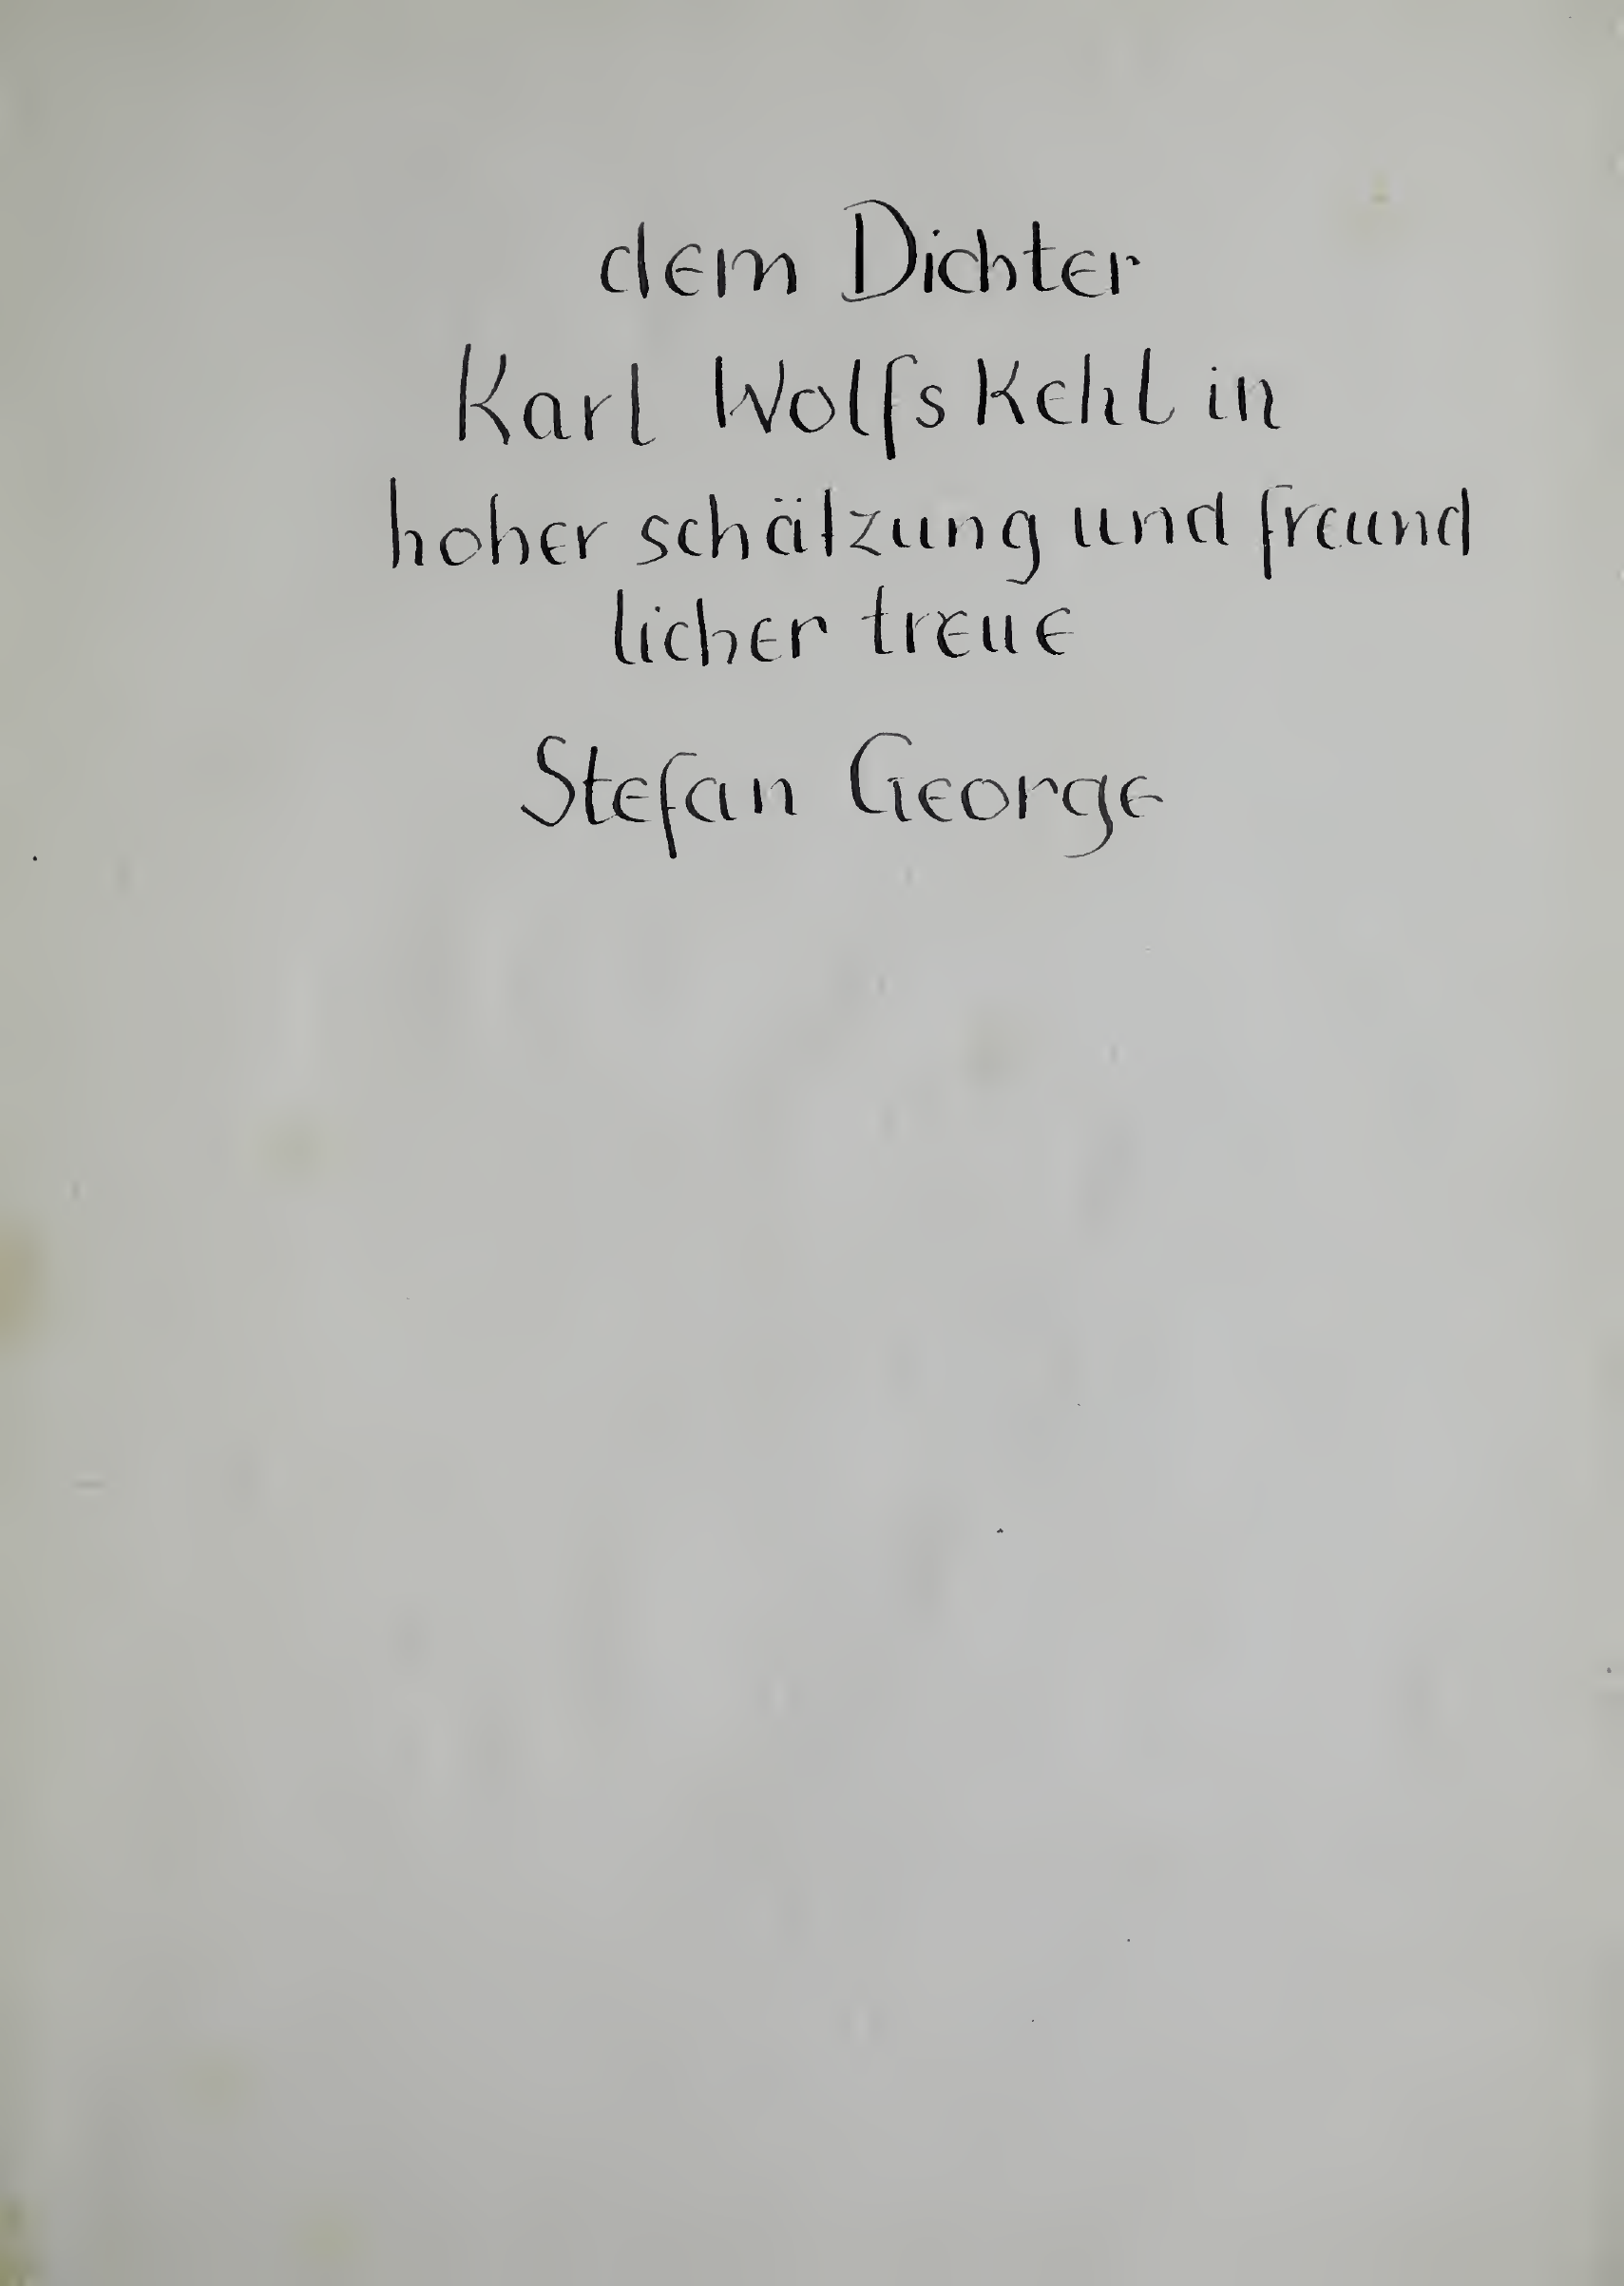 dem Dichter
Karl Wolfskehl in
hoher schätzung und freund
licher treue
Stefan George